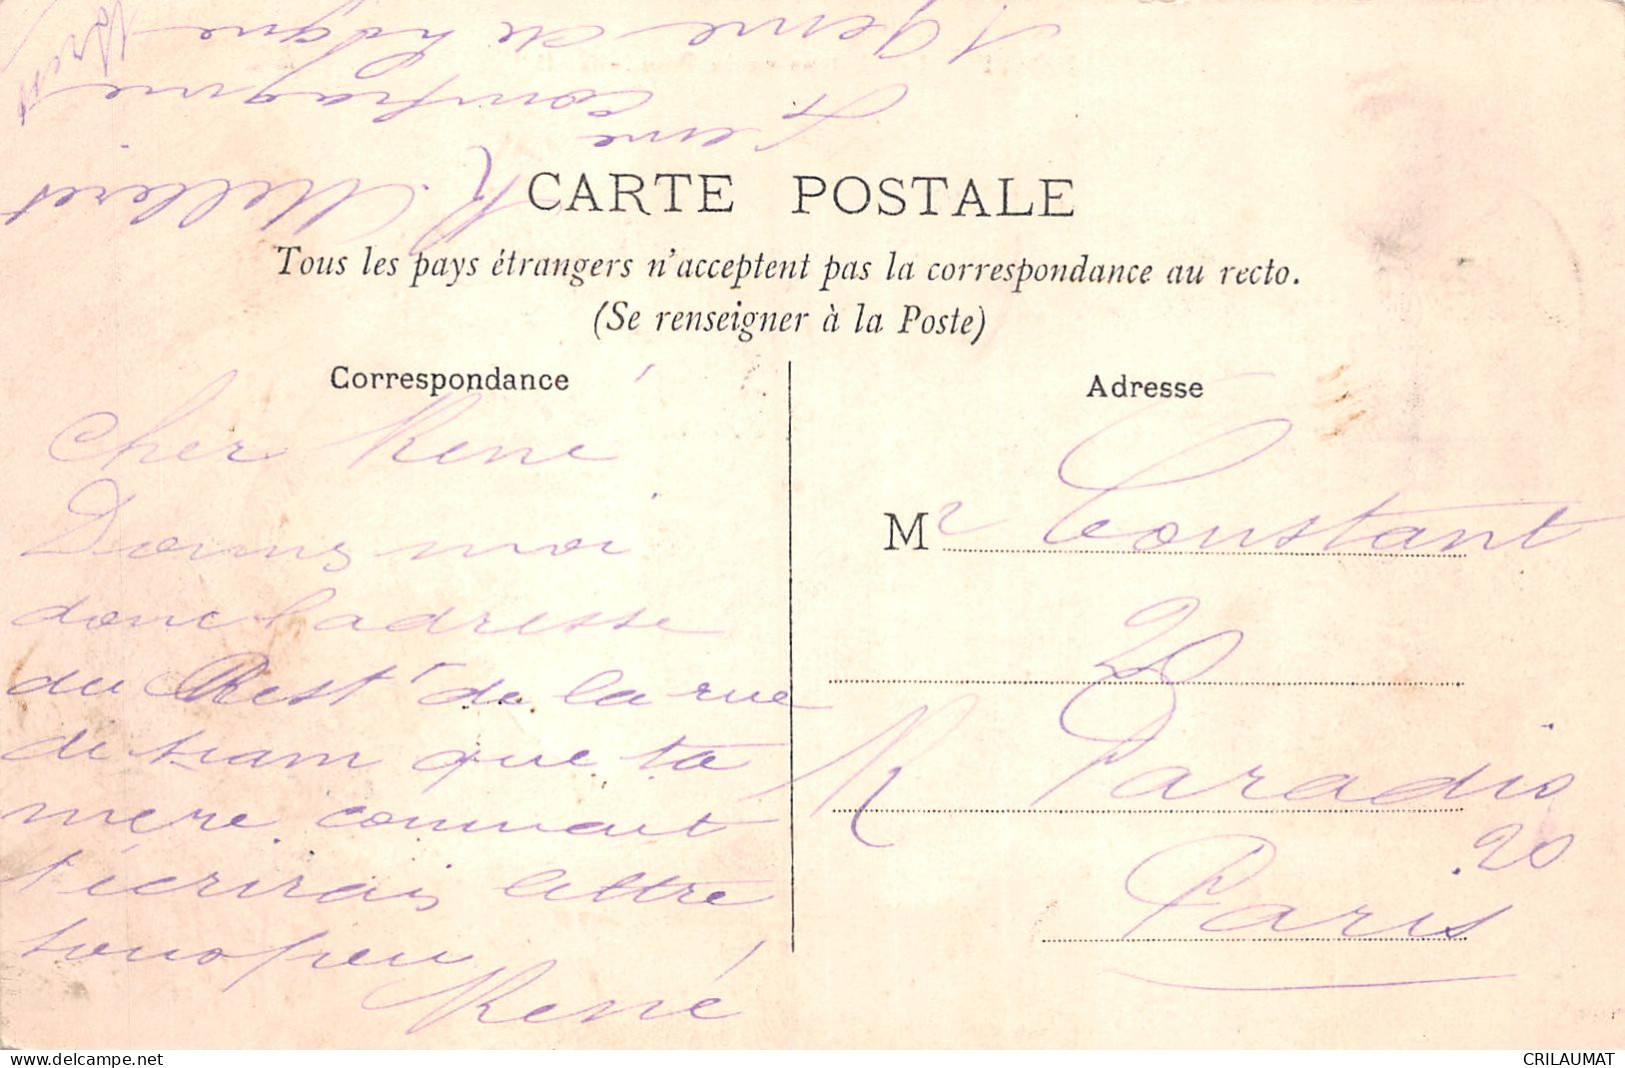 R. Melleret
4eme compagnie
1 Genie de ligne
Brest
CARTE POSTALE
Tous les pays étrangers n'acceptent pas la correspondance au recto.
(Se renseigner à la Poste)
Correspondance
Adresse
Cher René
Donnes moi
donc l'adresse
du Rest de la rue
de tram que ta
mère connait
t'écrirais lettre
sous peu
René
Mr Constant
20
R Paradis
20
Paris
delcampe.net
CRILAUMAT